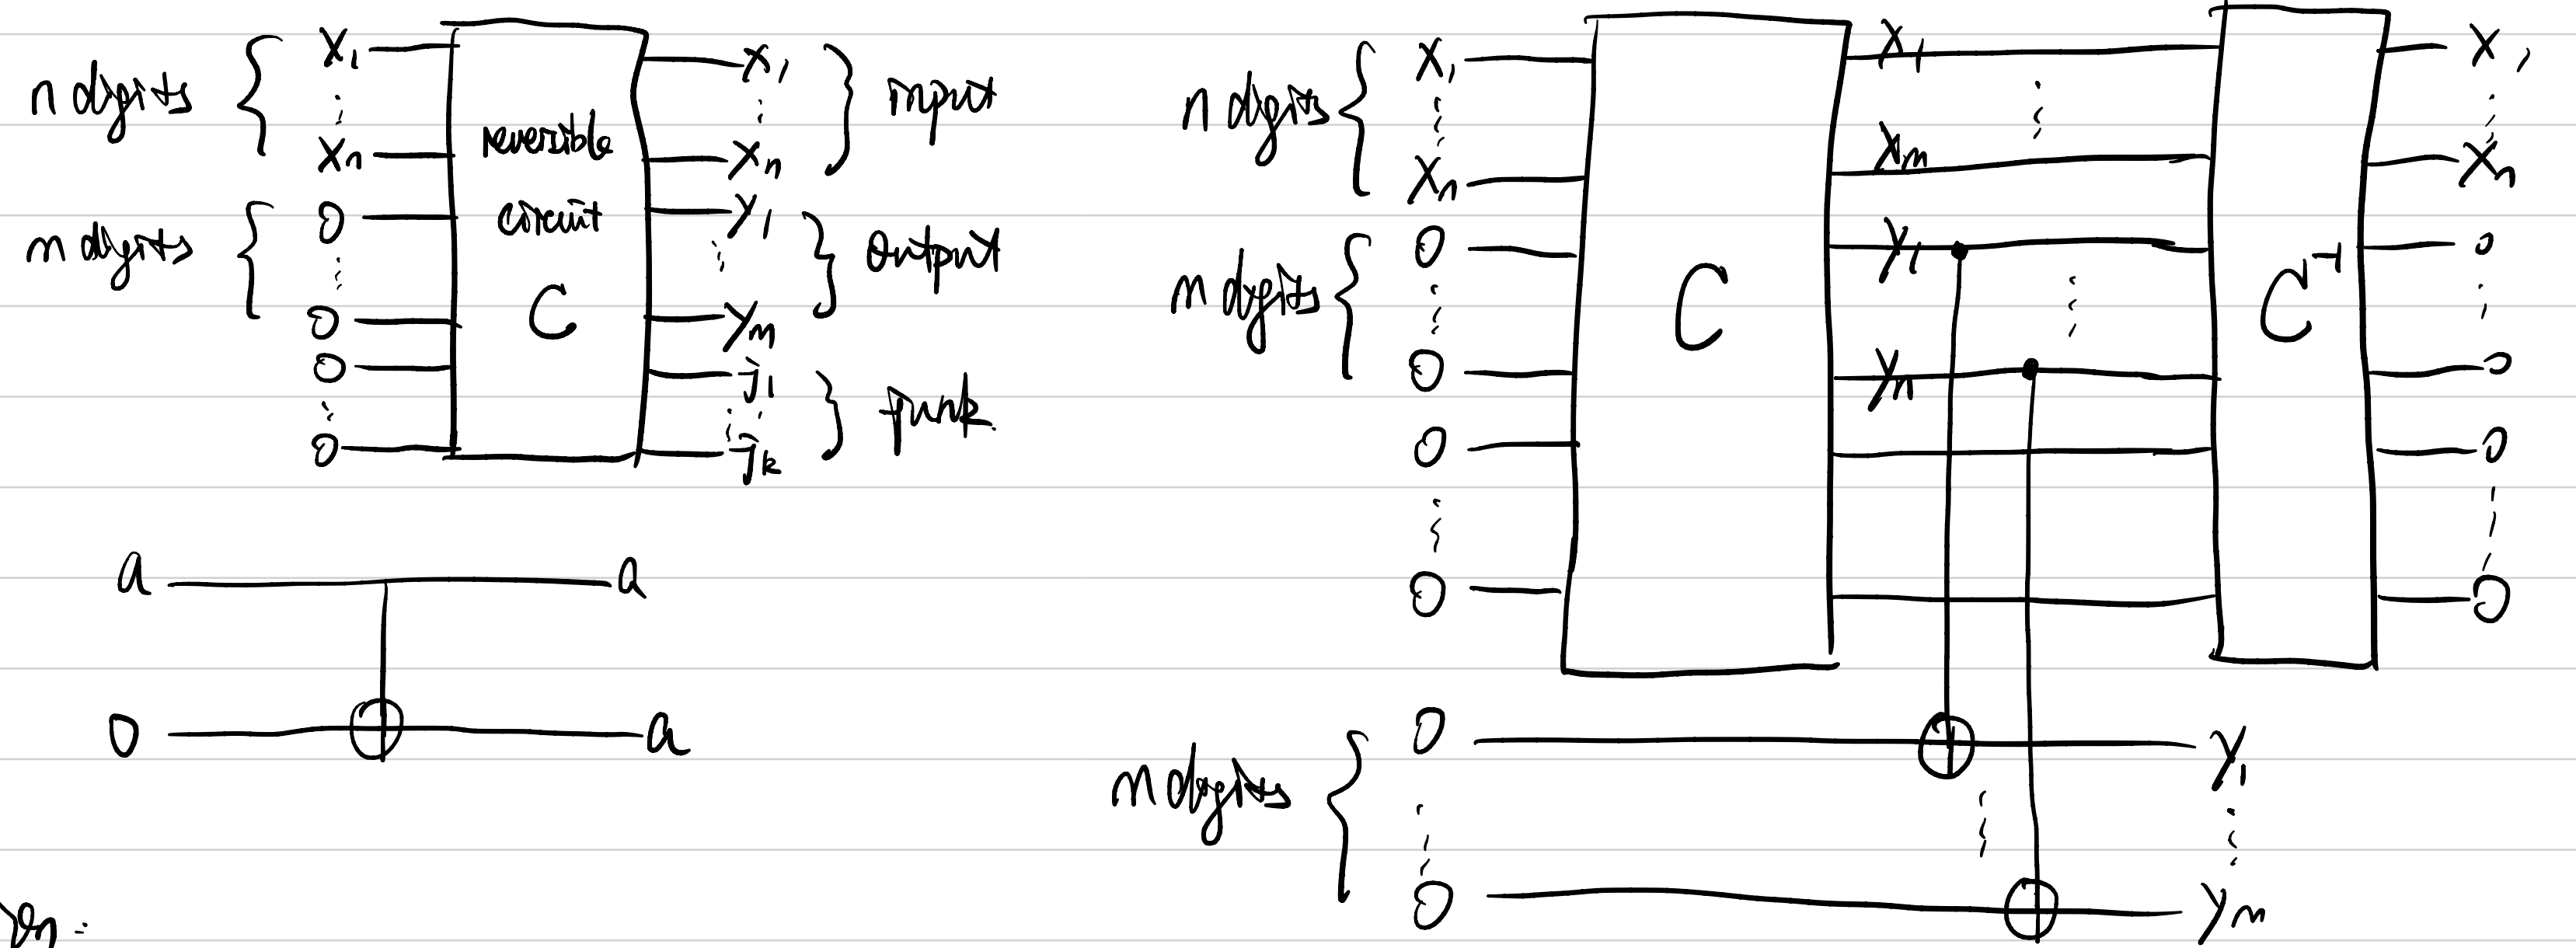 n digits
x1
xn
m digits
0
0
0
0
reversible
circuit
C
x1
xn
input
y1
ym
output
j1
jk
junk
a
a
0
a
n digits
x1
xn
m digits
0
0
0
0
C
x1
xm
y1
yn
C⁻¹
x1
xn
0
0
0
0
m digits
0
0
y1
ym